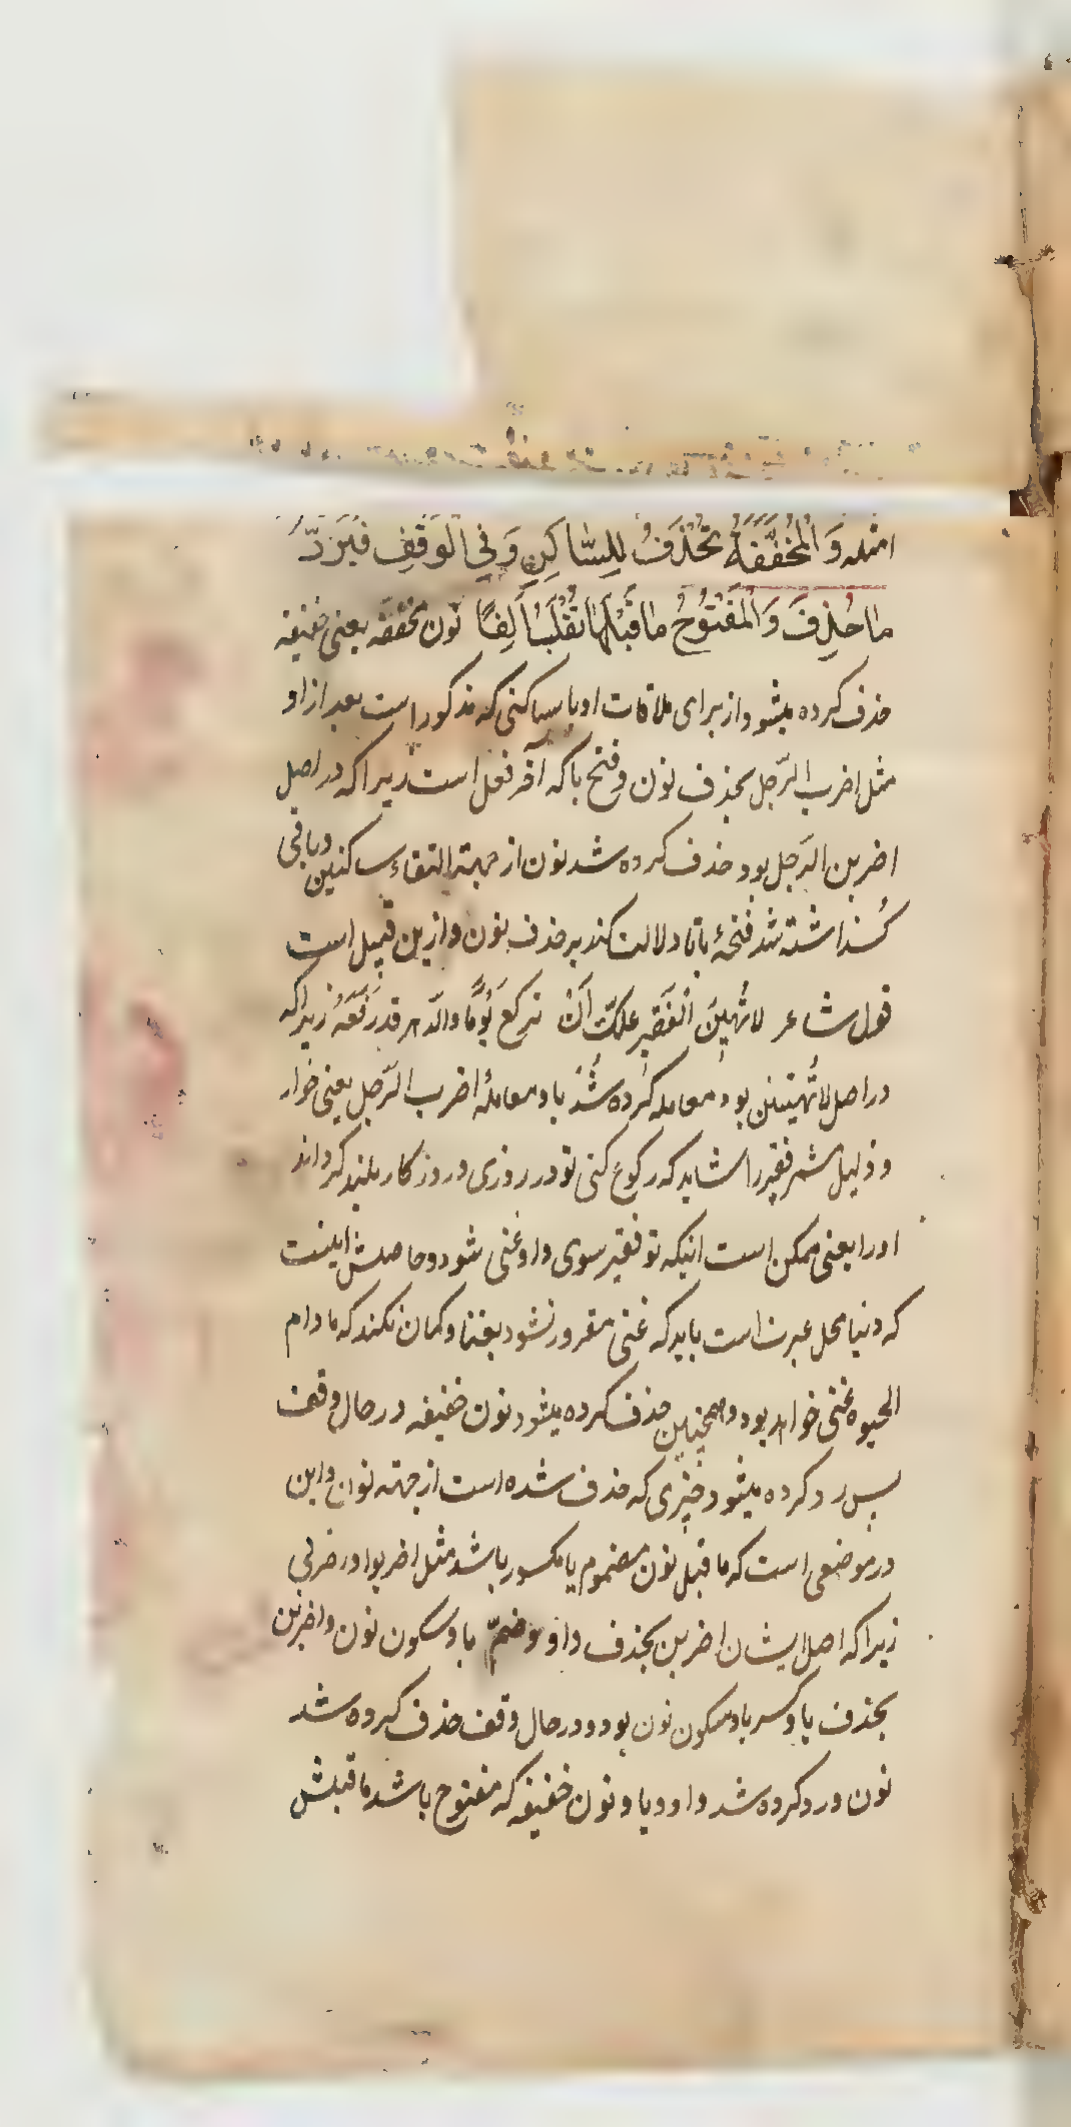 امثله وَ الْمُخَفَّفَةُ تُحْذَفُ لِلسّاكِنِ وَ فِي الْوَقْفِ فَيُرَدُّ
ما حُذِفَ وَ الْمَفْتُوحُ ما قَبْلَها تُقْلَبُ اَلِفًا نون مخففه یعنی خفیفه
حذف کرده میشود از برای ملاقات او با ساکنی که مذکور است بعد از او
مثل اضرب الرّجل بحذف نون و فتح با که آخر فعل است زیرا که در اصل
اضربن الرّجل بود حذف کرده شد نون از جهة التقاء ساکنین و باقی
گذاشته شد فتحهٔ با تا دلالت کند بر حذف نون و ازین قبیل است
قول شاعر لا تُهِینَ الْفَقیر علّکَ اَنْ ترکعَ یَوْمًا والدّهر قد رَفَعَهُ زیرا که
در اصل لا تُهینَنْ بود معامله کرده شُد با و معاملهٔ اضرب الرّجل یعنی خوار
و ذلیل مشمر فقیر را شاید که رکوع کنی تو در روزی و روزکار بلند کرداند
اورا یعنی ممکن است اینکه تو فقیر سوی و او غنی شود و حاصلش اینست
که دنیا محل عبرت است باید که غنی مغرور نشود بغنا و کمان نکند که مادام
الحیوه غنی خواهد بود و همچنین حذف کرده میشود نون خفیفه در حال وقف
پس رد کرده میشود چیزی که حذف شده است از جهته نون و این
در موضعی است که ما قبل نون مضموم یا مکسور باشد مثل اضربوا و اضربی
زیرا که اصل ایشان اضربن بحذف واو و ضمّ با و سکون نون و اضربن
بحذف یا و کسر با و سکون نون بود و در حال وقف حذف کرده شد
نون و رد کرده شد واو و یا و نون خفیفه که مفتوح باشد ما قبلش